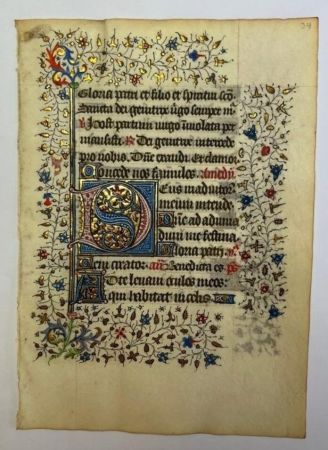 34
Gloria patri et filio et spiritui sc̄o
Sancta dei genitrix v̄go semper
Post partum virgo inuiolata per
mansisti ℟ Dei genitrix intercede
pro nobis. Dñe exaudi. Et clamor
Concede nos famulos.
Deus in adiutor
meum intende
Dñe ad adiuua
dum me festina
Gloria patri
Sicut erat añ Benedicta es ps
Ad te leuaui oculos meos:
qui habitas in celis